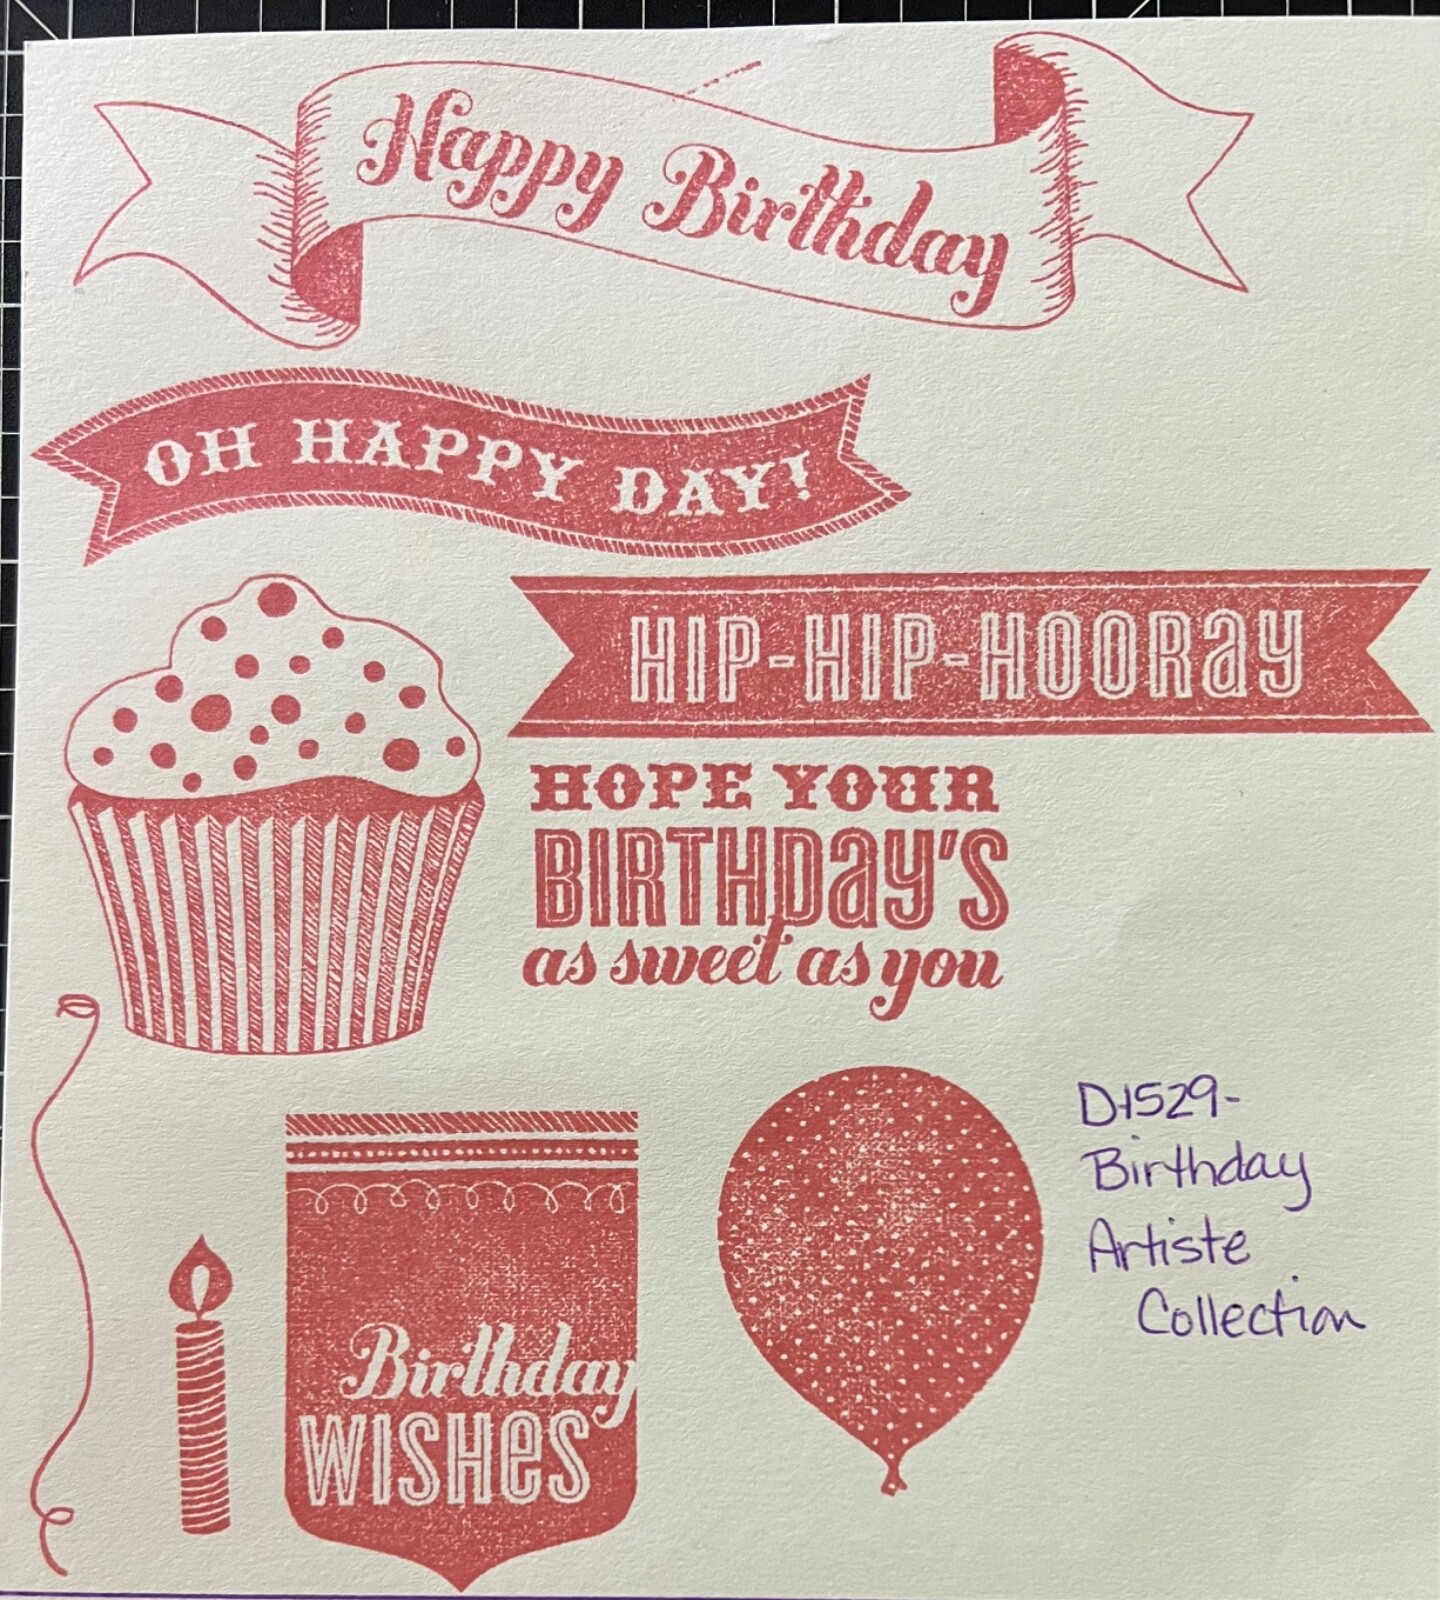 Happy Birthday
OH HAPPY DAY!
HIP-HIP-HOORaY
HOPE YOUR
BIRTHDaY'S
as sweet as you
D1529-
Birthday
Artiste
Collection
Birthday
WISHes